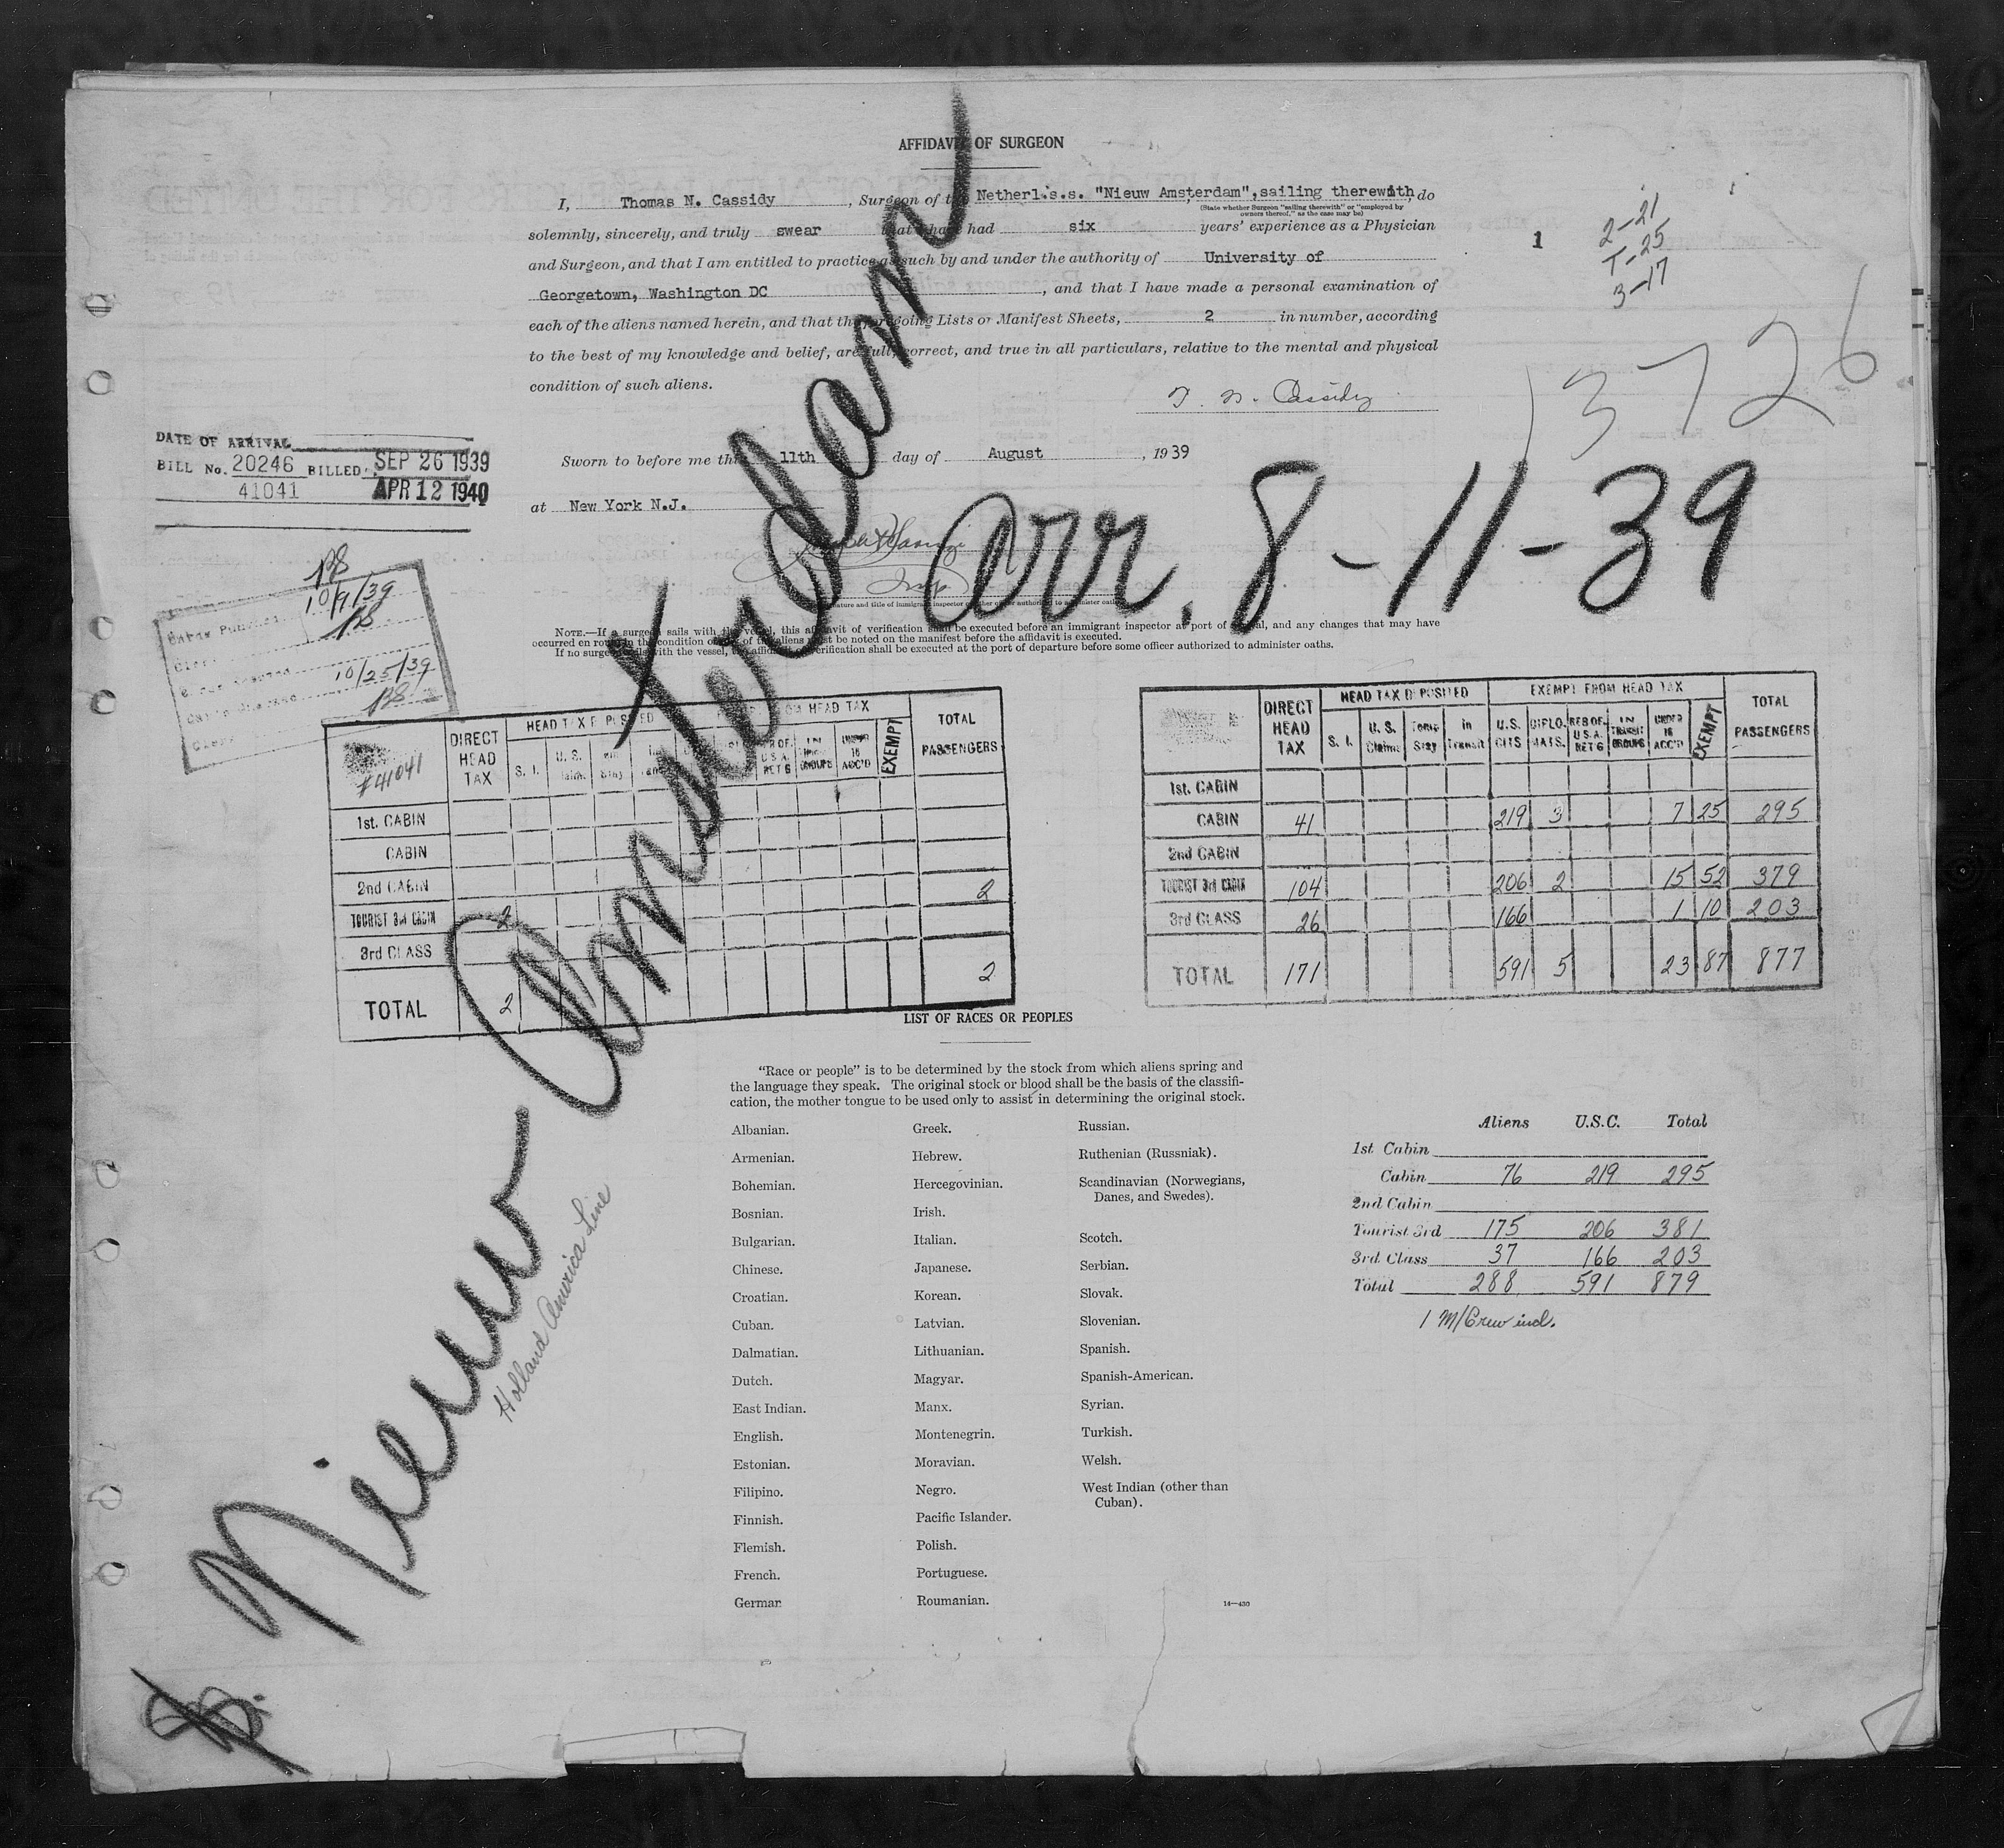 AFFIDAVIT OF SURGEON
I, Thomas N. Cassidy, Surgeon of the Netherl.s.s. "Nieuw Amsterdam", sailing therewith, do
(State whether Surgeon "sailing therewith" or "employed by
owners thereof," as the case may be)
solemnly, sincerely, and truly swear that I have had six years' experience as a Physician
and Surgeon, and that I am entitled to practice as such by and under the authority of University of
Georgetown, Washington DC, and that I have made a personal examination of
each of the aliens named herein, and that the foregoing Lists or Manifest Sheets, 2 in number, according
to the best of my knowledge and belief, are full, correct, and true in all particulars, relative to the mental and physical
condition of such aliens.
T. N. Cassidy
1
2-21
T-25
3-17
13726
DATE OF ARRIVAL
BILL No. 20246 BILLED. SEP 26 1939
41041 APR 12 1940
Sworn to before me this 11th day of August, 1939
at New York N.J.
Insp
Nieuw Amsterdam
Arr. 8-11-39
Holland America Line
10/9/39
10/25/39
NOTE.—If a surgeon sails with the vessel, this affidavit of verification shall be executed before an immigrant inspector at port of arrival, and any changes that may have
occurred en route in the condition of any of the aliens must be noted on the manifest before the affidavit is executed.
If no surgeon sails with the vessel, the affidavit of verification shall be executed at the port of departure before some officer authorized to administer oaths.
#41041
DIRECT HEAD TAX
HEAD TAX DEPOSITED
EXEMPT FROM HEAD TAX
TOTAL PASSENGERS
1st. CABIN
CABIN
2nd CABIN 2
TOURIST 3rd CABIN 2
3rd CLASS
TOTAL 2 2
DIRECT HEAD TAX
HEAD TAX DEPOSITED
S. I. U. S. Claims Temp Stay in Transit
EXEMPT FROM HEAD TAX
U.S. CITS DIPLO. MATS. RES OF U.S.A. RET'G IN TRANSIT GROUPS UNDER 16 ACC'D EXEMPT
TOTAL PASSENGERS
1st. CABIN
CABIN 41 219 3 7 25 295
2nd CABIN
TOURIST 3rd CABIN 104 206 2 15 52 379
3rd CLASS 26 166 1 10 203
TOTAL 171 591 5 23 87 877
LIST OF RACES OR PEOPLES
"Race or people" is to be determined by the stock from which aliens spring and
the language they speak. The original stock or blood shall be the basis of the classifi-
cation, the mother tongue to be used only to assist in determining the original stock.
Albanian.
Armenian.
Bohemian.
Bosnian.
Bulgarian.
Chinese.
Croatian.
Cuban.
Dalmatian.
Dutch.
East Indian.
English.
Estonian.
Filipino.
Finnish.
Flemish.
French.
German
Greek.
Hebrew.
Hercegovinian.
Irish.
Italian.
Japanese.
Korean.
Latvian.
Lithuanian.
Magyar.
Manx.
Montenegrin.
Moravian.
Negro.
Pacific Islander.
Polish.
Portuguese.
Roumanian.
Russian.
Ruthenian (Russniak).
Scandinavian (Norwegians,
Danes, and Swedes).
Scotch.
Serbian.
Slovak.
Slovenian.
Spanish.
Spanish-American.
Syrian.
Turkish.
Welsh.
West Indian (other than
Cuban).
14—430
Aliens U.S.C. Total
1st Cabin
Cabin 76 219 295
2nd Cabin
Tourist 3rd 175 206 381
3rd Class 37 166 203
Total 288 591 879
1 M/Crew incl.